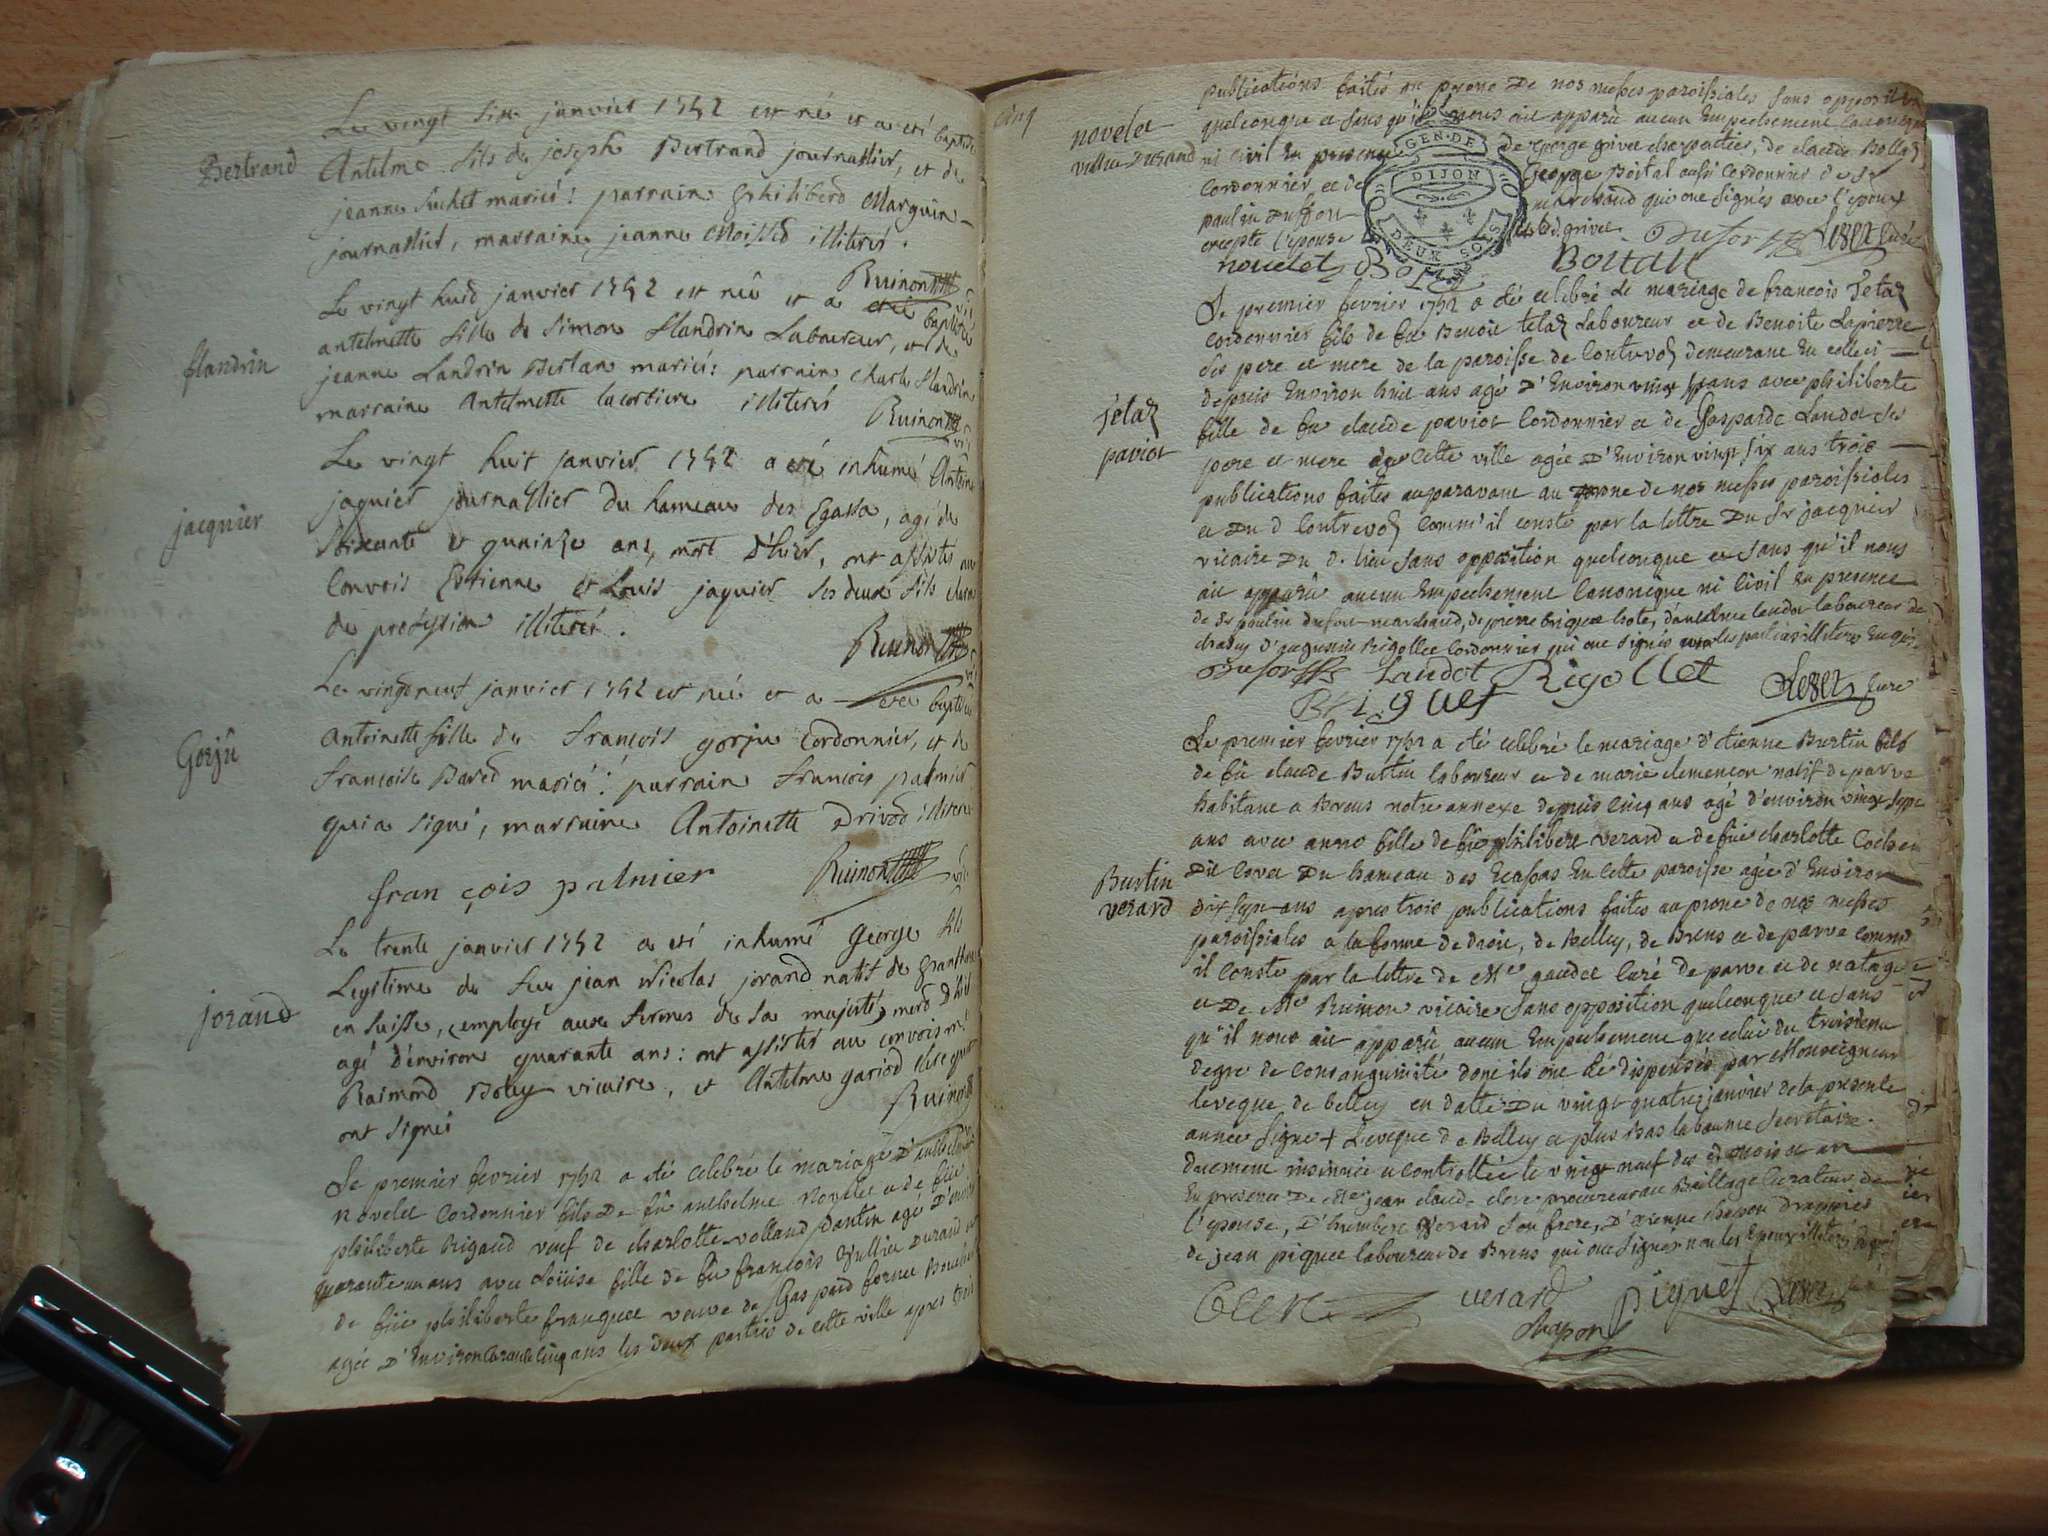 Le vingt six janvier 1752 est né et a eté baptisé
Bertrand
Antelme fils de joseph Bertrand journallier, et de
jeanne suchet mariés: parrain philiberd Marguin
journallier, marraine jeanne illiterés.
Ruinon
Le vingt huid janvier 1752 est néé et a eté baptisé
flandrin
antelmette fille de simon flandrin Laboureur, et de
jeanne Landrin Bertan mariés: parrain Charle flandrin
marraine Antelmette lacostiere illiterés
Ruinon
Le vingt huit janvier 1752 a eté inhumé Antoine
jacquier
jaquier journallier du hameau des Egassa, agé de
soixante et quninze ans, mort d'hier, ont assistés au
Convois Estienne et Louis jaquier ses deux fils
de profession illiterés.
Ruinon
Le vingt neuf janvier 1752 est néé et a eté baptisé
Gorjû
Antoinette fille de francois gorju Cordonnier, et de
francoise Bared mariés: parrain francois palmier
qui a signé, marraine Antoinette Drivod illiteré
françois palmier
Ruinon
Le trente janvier 1752 a eté inhumé George fils
jorand
Legitime de feu jean Nicolas jorand natif de
en suisse, employé aux fermes de sa majesté, mord d'hier
agé d'environ quarante ans: ont assistés au convois
Raimond Boley vicaire, et Antelme gariod clerc qui
ont signés
Ruinon
Le premier fevrier 1752 a eté celebré le mariage
novelet Cordonnier fils de fû anthelme novellet et de fûe
philiberte Rigaud veuf de charlotte volland pantin agé d'environ
quarante un ans avec Loüise fille de fû francois Vullin Durand
de fûe philiberte franquet veuve de Gaspard fornier
agée d'Environ trente cinq ans les deux parties de cette ville apres trois
cinq
publications faites au prone de nos messes paroissiales sans opposition
novelet
vullin Durand
quelconque et sans qu'il nous ait apparû aucun Empechement canonique
ni civil En presence de George grivet charpentier, de claude Bollas
Cordonnier et de George Boital aussi cordonnier de Sr
paulin Duffour marchand qui ont signés avec l'epoux
excepté l'epouse grivet
GEN. DE
DIJON
DEUX SOLS
novelet Bolas Boitall Dufour Leser curé
Le premier fevrier 1752 a eté celebré le mariage de francois jetaz
cordonnier fils de fû Benoit jetaz Laboureur et de Benoite Lapierre
ses pere et mere de la paroisse de Contrevoz demeurant En celleci
depuis Environ huit ans agé d'Environ vingt ans avec philiberte
jetaz
paviot
fille de fû claude paviot Cordonnier et de Gasparde Landot ses
pere et mere de cette ville agée d'Environ vingt six ans trois
publications faites auparavant au prone de nos messes paroissiales
et du d Contrevoz comm'il conste par la lettre du Sr jacquier
vicaire du d. lieu sans opposition quelconque et sans qu'il nous
ait apparû aucun Empechement Canonique ni Civil En presence
de Sr paulin dufour marchand, de pierre briguet hote, d'anthelme landot laboureur de
d'augustin Rigollet cordonnier qui ont signés
Dufour Landot Rigollet
Briguet Leser Curé
Le premier fevrier 1752 a eté celebré le mariage d'etienne Burtin fils
de fû claude Burtin laboureur et de marie clemencon natif de parve
habitant a Brens notre annexe depuis cinq ans agé d'environ vingt sept
ans avec anne fille de fû philibert verard et de fûe charlotte
Burtin
verard
dit Covet du hameau des Ecassas En cette paroisse agée d'Environ
dix sept ans apres trois publications faites au prone de nos messes
paroissiales a la forme de droit, de Belley, de Brens et de parve comme
il conste par la lettre de Me gaudet curé de parve et de natage
et de Me Ruinon vicaire sans opposition quelconque et sans
qu'il nous ait apparû aucun Empechement que celui du troisieme
degré de consanguinité dont ils ont été dispensés par Monseigneur
l'eveque de belley en datte du vingt quatre janvier de la presente
année signé + l'eveque de Belley et plus bas labaume secretaire.
duement insinuée et controllée le vingt neuf des d. mois et an
En presence de Me jean claude clerc procureur au Baillage Curateur de
l'epouse, d'humbert verard son frere, d'etienne chapon drappier
de jean piquet laboureur de Brens qui ont signés non les Epoux illiterés
Clerc verard piquet Leser
chapon